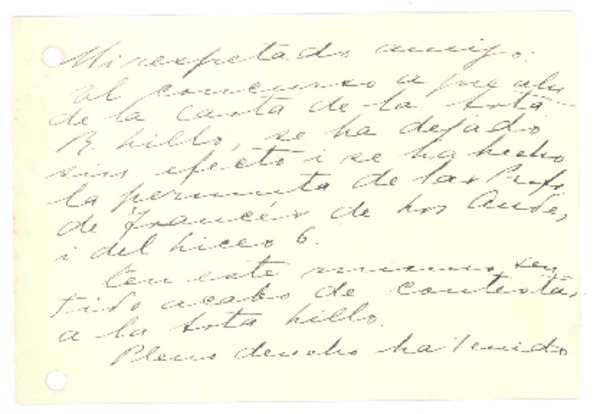 Mi respetado amigo:
El concurso a que alu-
de la carta de la Srta
R. Lillo, se ha dejado
sin efecto i se ha hecho
la permuta de las Profs
de Francés de Los Andes,
i del Liceo 6.
Con este mismo sen-
tido acabo de contestar
a la Srta Lillo.
Pleno derecho ha tenido